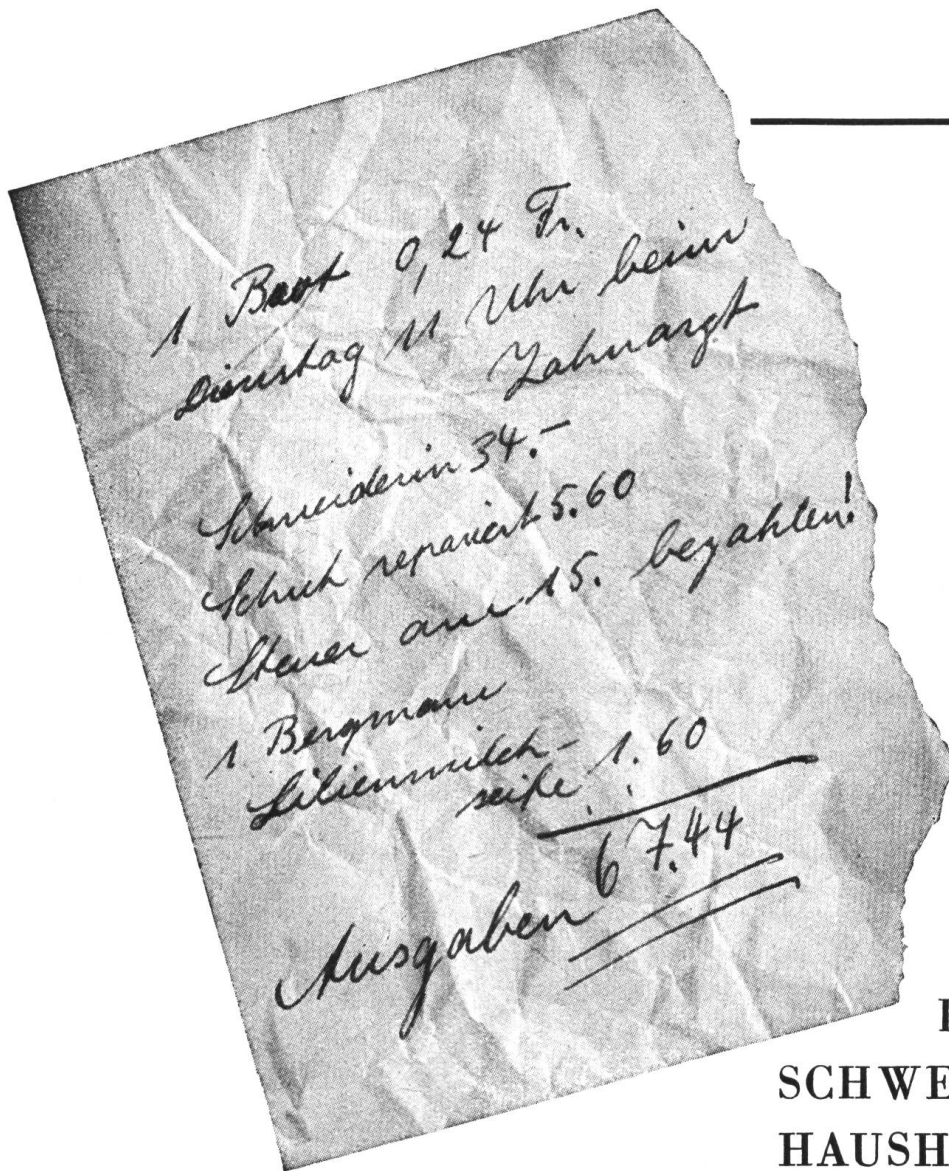 1 Brot 0,24 Fr.
Dienstag 11 Uhr beim
Zahnarzt
Schneiderin 34.–
Schuh repariert 5.60
Steuer am 15. bezahlen!
1 Bergmann
Lilienmilch-
seife 1.60
67.44
Ausgaben
SCHWE
HAUSH